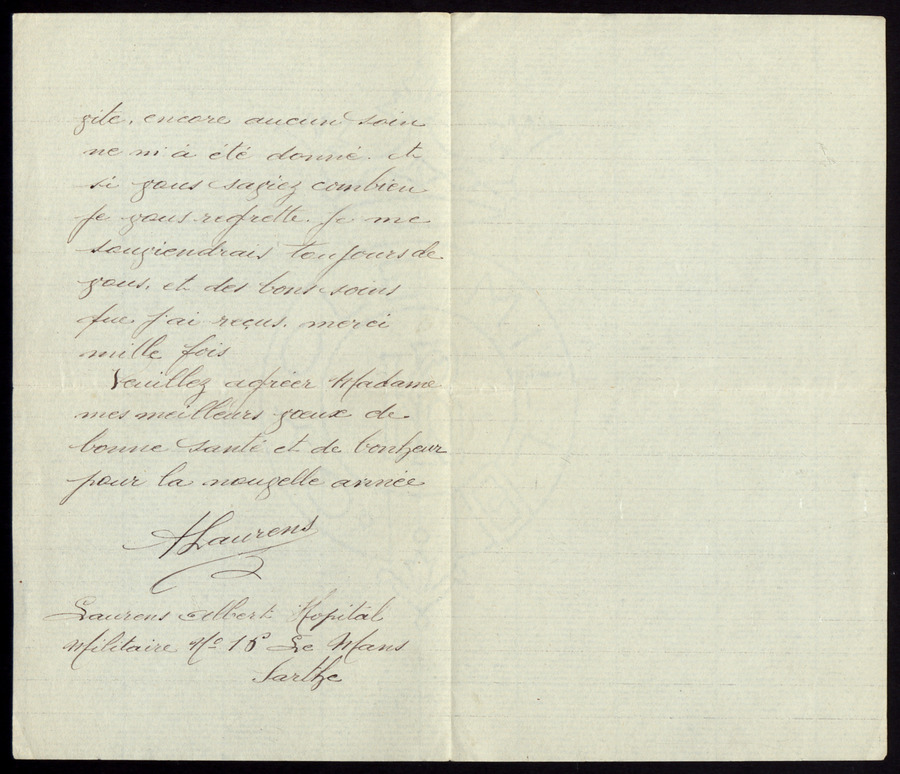 vite. encore aucun soin
ne m'a été donné. et
si vous saviez combien
je vous regrette. Je me
souviendrais toujours de
vous. et des bons soins
que j'ai reçus. merci
mille fois
Veuillez agréer Madame
mes meilleurs vœux de
bonne santé et de bonheur
pour la nouvelle année
ALaurens
Laurens Albert Hopital
Militaire No 15 Le Mans
Sarthe